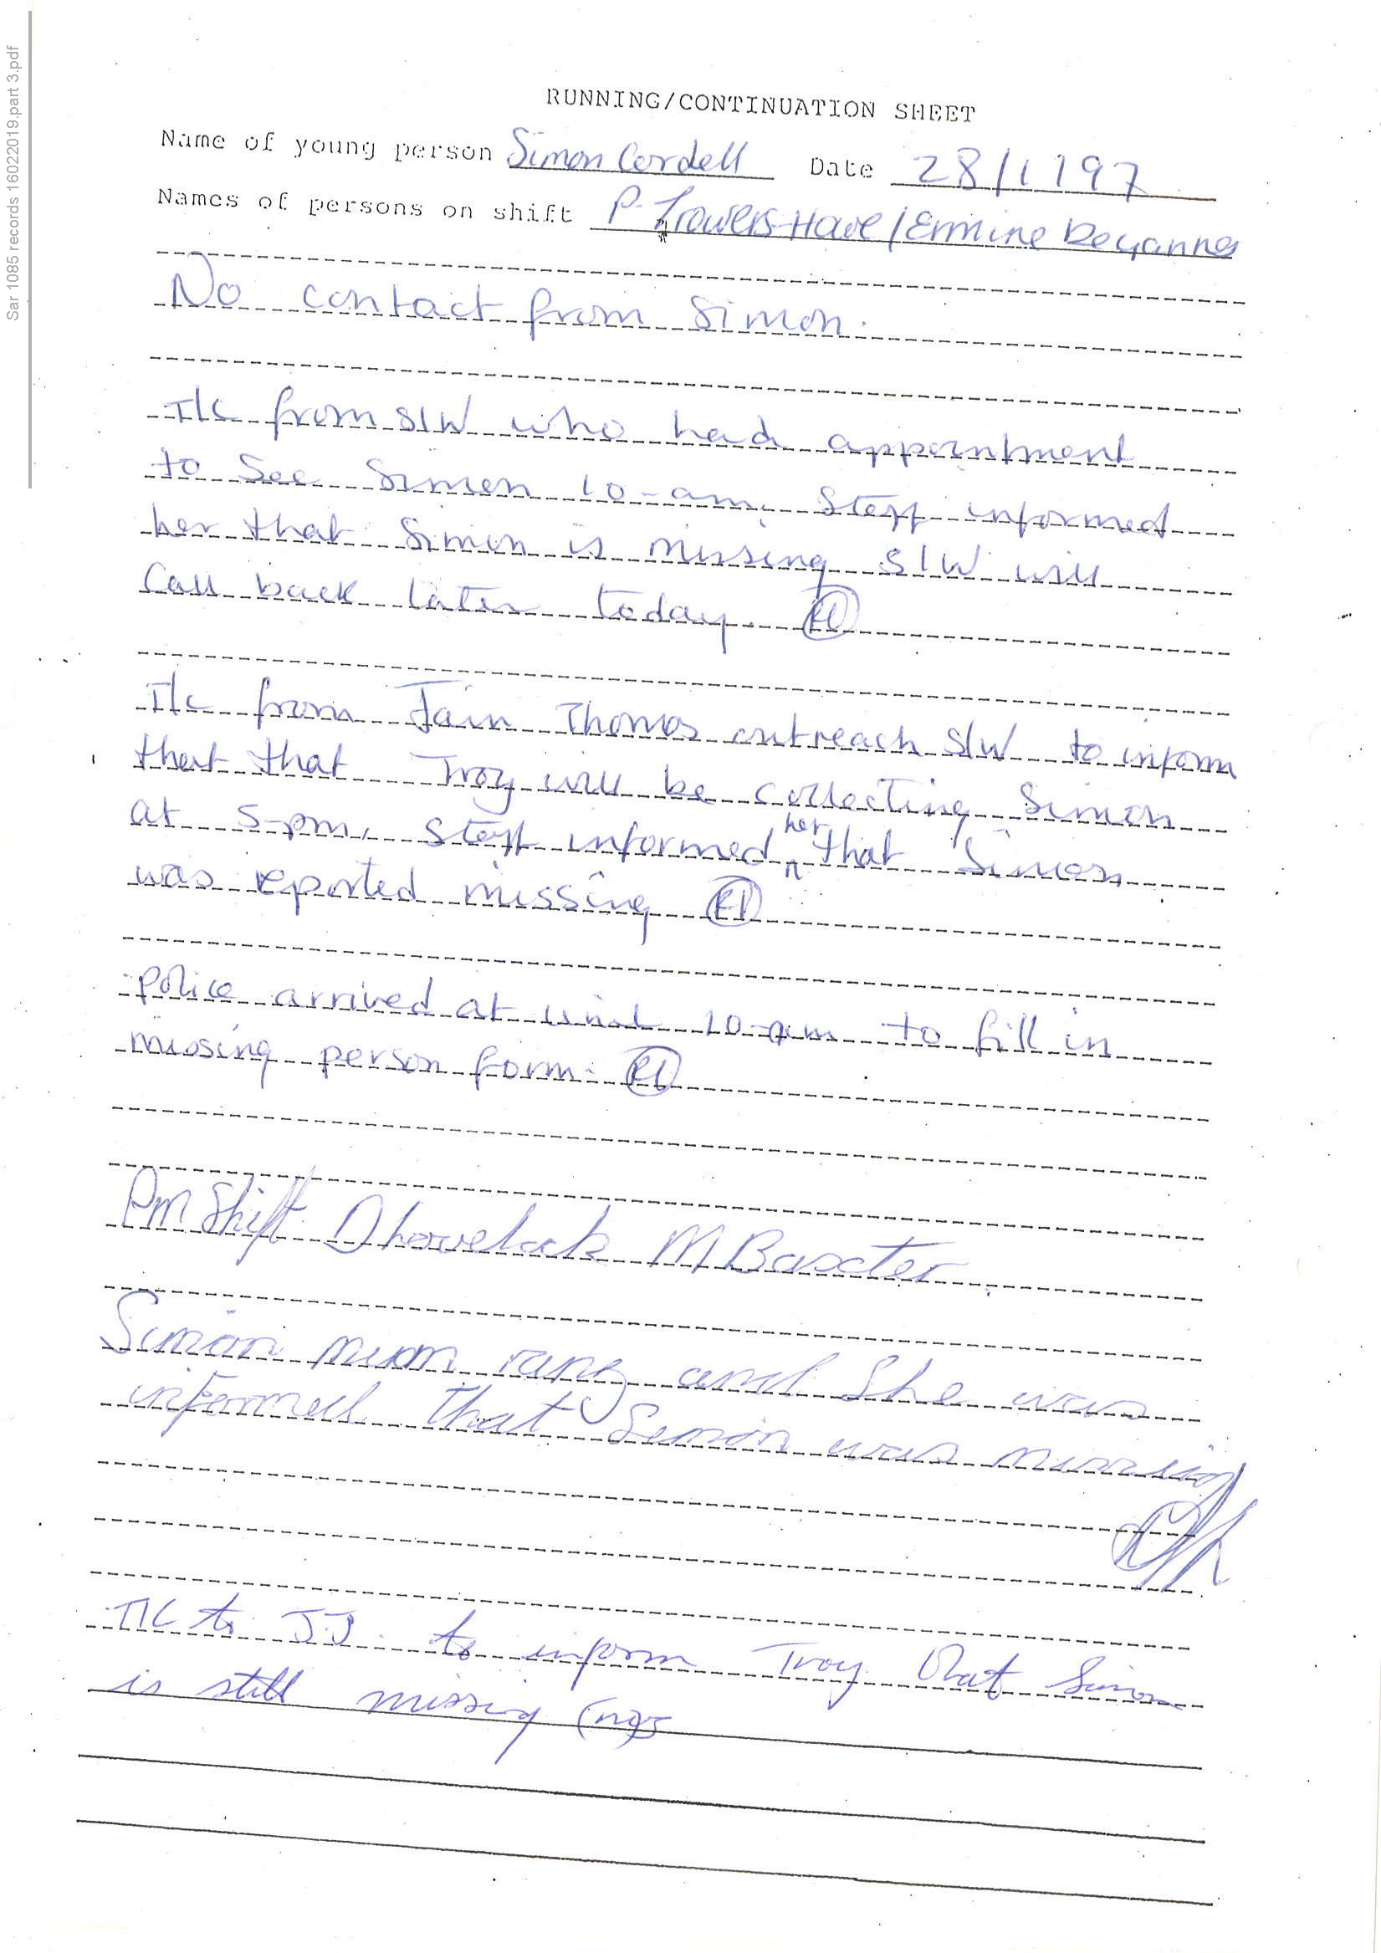 Sar 1085 records 16022019.part 3.pdf
RUNNING/CONTINUATION SHEET
Name of young person Simon Cordell Date 28/1197
Names of persons on shift P. Trowers-Have / Ermine
No contact from Simon.
T/c from S/W who had appointment
to see Simon 10-am. Staff informed
her that Simon is missing S/W will
Call back later today.
T/c from Jain Thomas outreach S/W to inform
that that Troy will be collecting Simon
at 5-pm, staff informed her that Simon
was reported missing
police arrived at unit 10-am to fill in
missing person form.
Pm Shift D M Baxter
Simon mum rang and She was
informed that Simon was missing
T/C to J.J. to inform Troy that Simon
is still missing